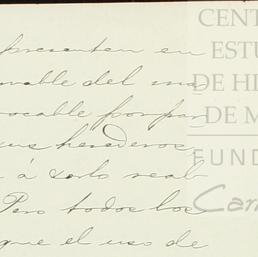 presenten en
vable del ma
vocable por par
sus herederos
á serlo real
Pero todos los
que el uso de
CENT
ESTU
DE HI
DE M
FUND
Car